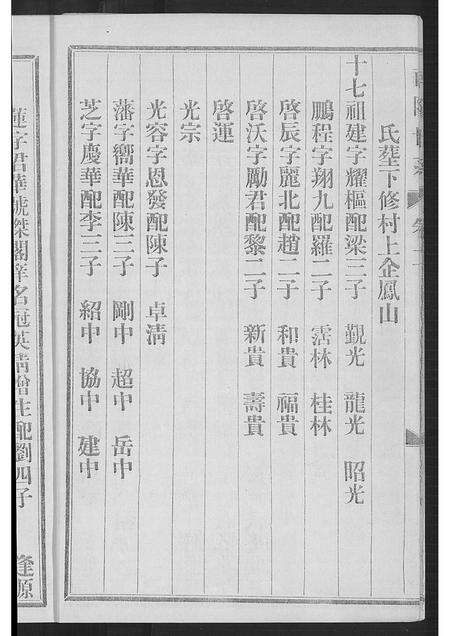 氏塟下修村上企鳳山
十七祖建字耀樞配梁三子 觐光 龍光 昭光
鵬程字翔九配羅二子 霑林 桂林
啓辰字麗北配趙二子 和貴 福貴
啓沃字勵君配黎二子 新貴 壽貴
啓運
光宗
光容字恩發配陳子 卓清
藩字嚮華配陳三子 剛中 超中 岳中
芝字慶華配李三子 紹中 協中 建中
字君華號傑閣庠名冠英青增生配劉四子 逢源